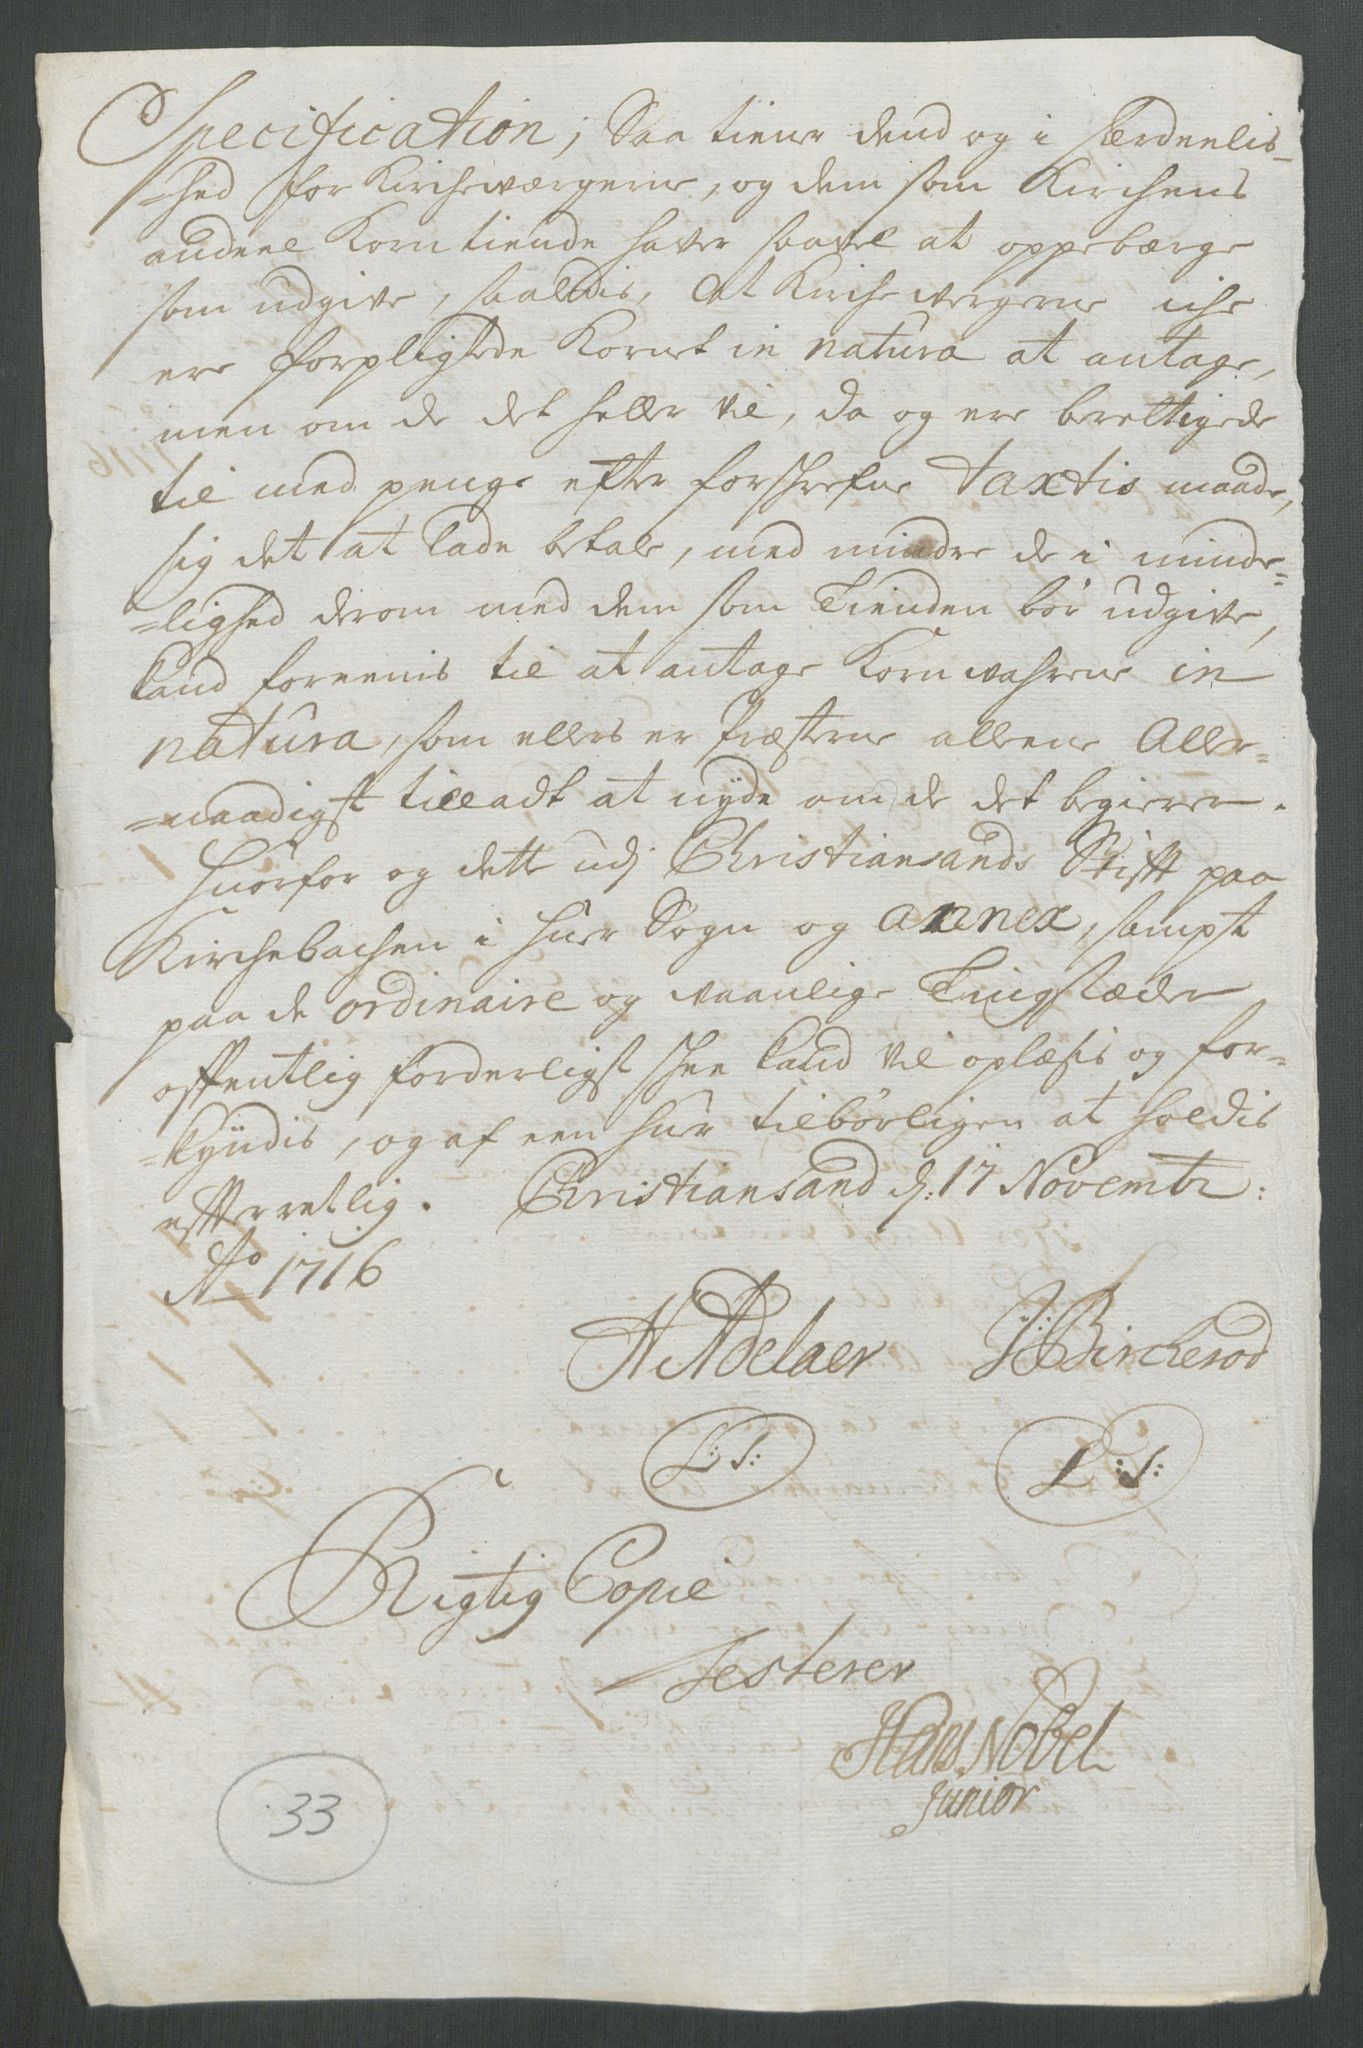 Specification, Saa tiener dend og i særdeelis-
-hed for Kircheværgerne, og dem som Kirchens
andeel Korntiende haver saavel at oppebærge
som udgive, saaledis, At Kirche wergerne iche
ere forpligtede Kornet in natura at antage,
men om de det heller vil, da og ere berettigede
til med penge efter forschrefne taxtis maade,
sig det at lade betale, med mindre de i minde=
=lighed derom med dem som Tienden bør udgive,
kand foreenis til at antage Kornvahrene in
natura, som ellers er Præsterne allene Aller=
=naadigst tilladt at nyde om de det begierer.
Huorfor og dette udj Christiansands Stift paa
Kirchebachen i huer Sogn og annex, sampt
paa de ordinaire og vaanlige Tingstæder
offentlig forderligst schee kand vil oplæsis og for-
-kyndis, og af een huer tilbørligen at holdis
efterretlig. Christiansand d: 17 Novembr:
Ao 1716
H Adelaer J: Bircherod
L: S: L: S:
Rigtig Copie
Testerer
Hans Nobel
Junior
33